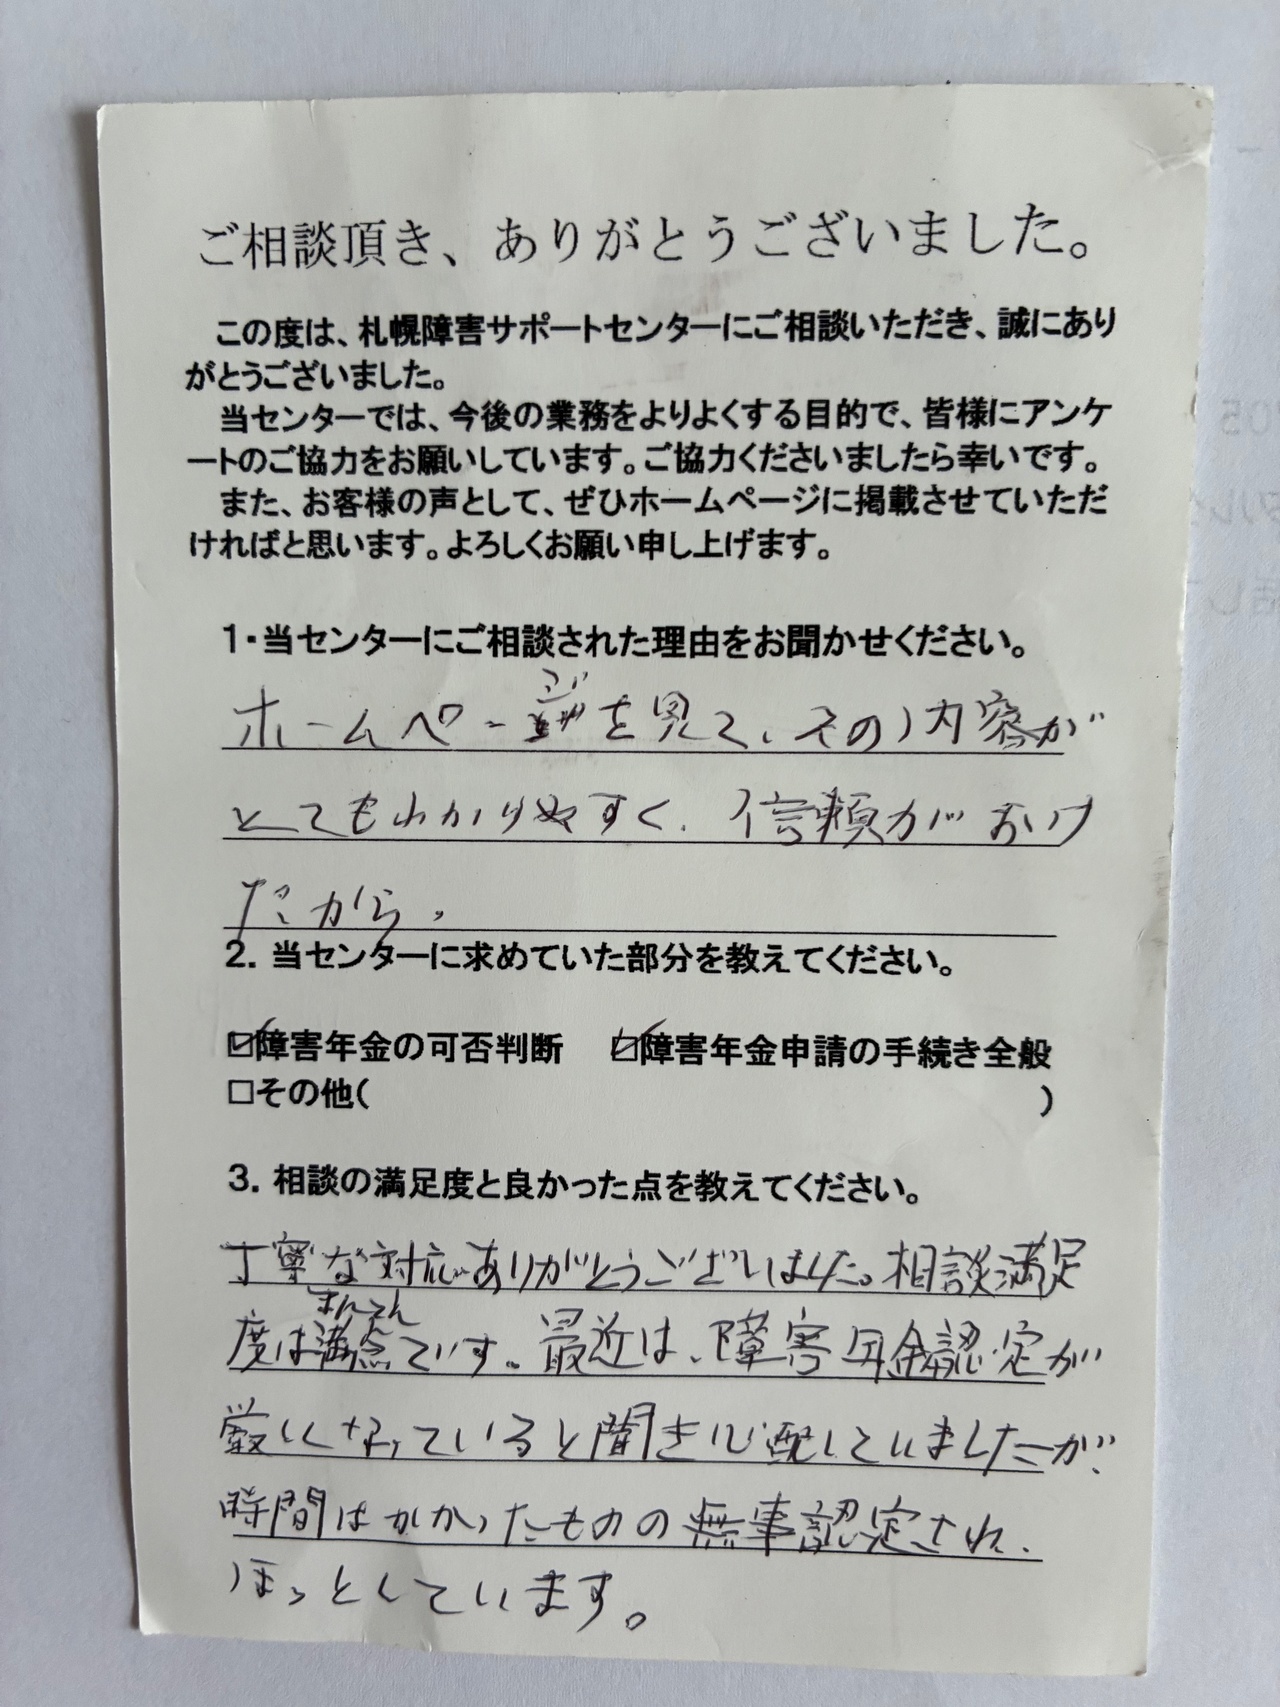 ご相談頂き、ありがとうございました。
この度は、札幌障害サポートセンターにご相談いただき、誠にあり
がとうございました。
当センターでは、今後の業務をよりよくする目的で、皆様にアンケ
ートのご協力をお願いしています。ご協力くださいましたら幸いです。
また、お客様の声として、ぜひホームページに掲載させていただ
ければと思います。よろしくお願い申し上げます。
1・当センターにご相談された理由をお聞かせください。
ホームページを見て、その内容が
とてもわかりやすく、信頼がおけ
たから。
2. 当センターに求めていた部分を教えてください。
☑障害年金の可否判断 ☑障害年金申請の手続き全般
□その他( )
3. 相談の満足度と良かった点を教えてください。
丁寧な対応ありがとうございました。相談満足
まんてん
度は満点です。最近は、障害年金認定が
厳しくなっていると聞き心配していましたが、
時間はかかったものの無事認定され、
ほっとしています。